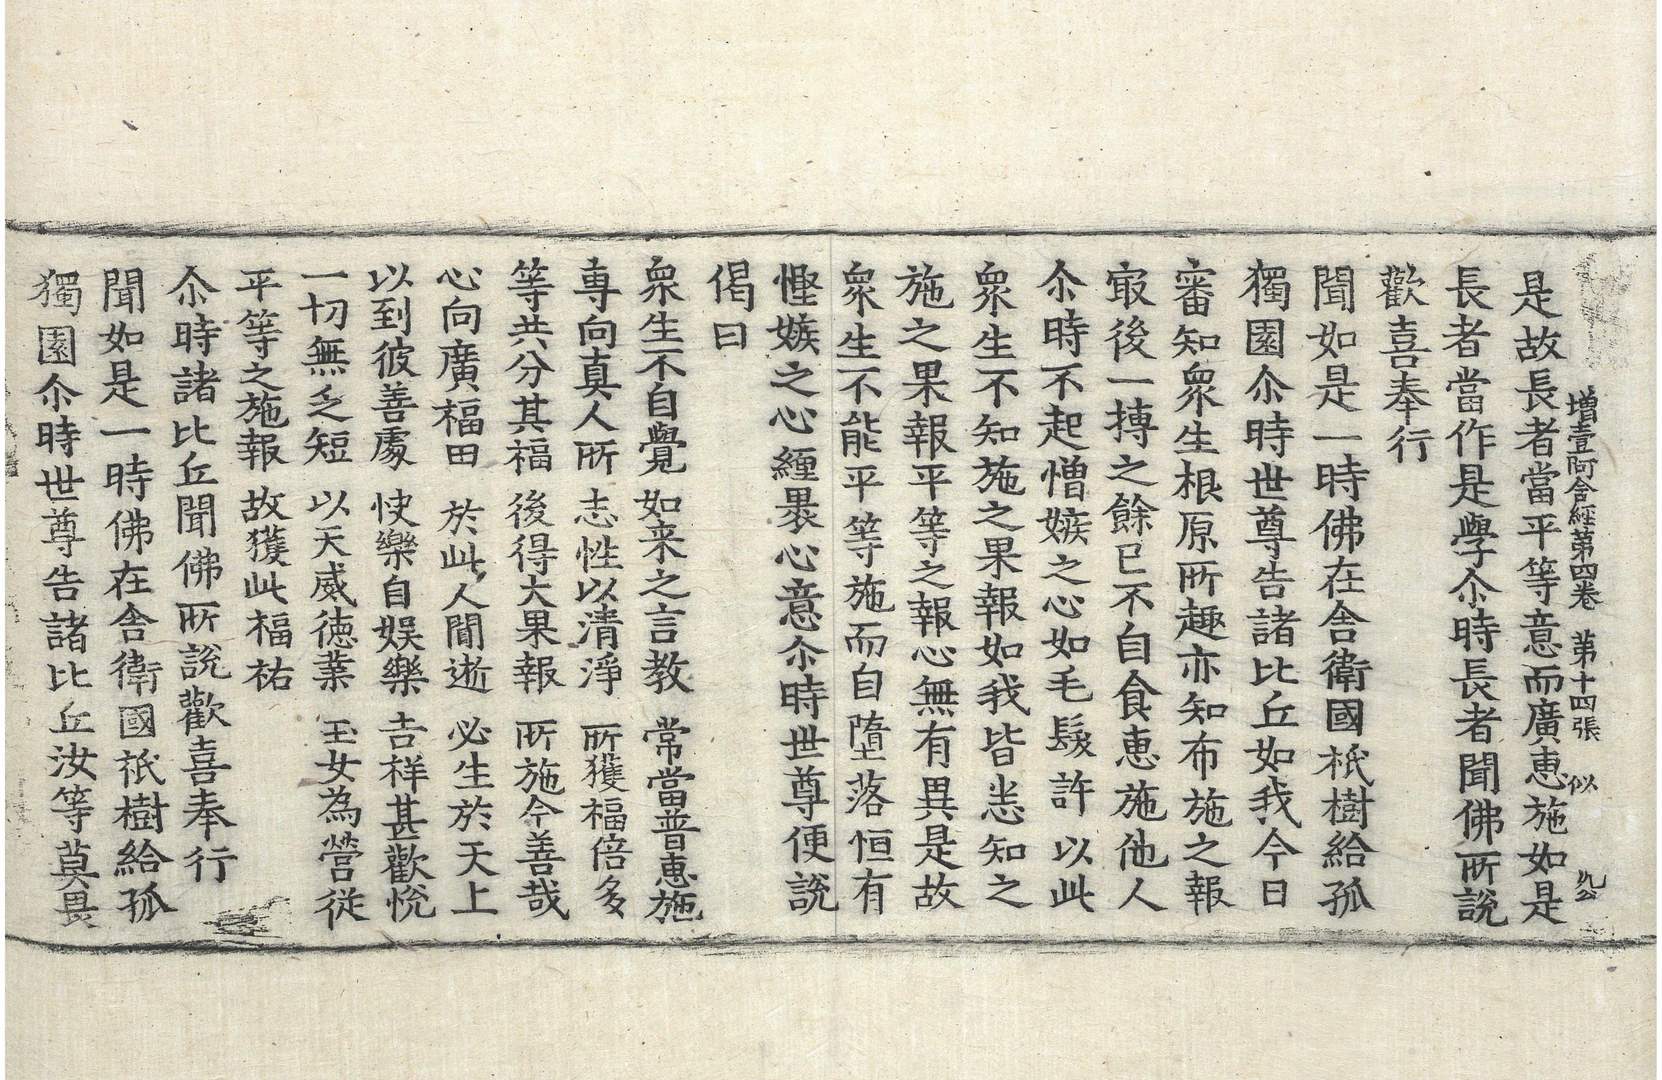 增壹阿含經第四卷 第十四張 似
是故長者當平等意而廣恵施如是
長者當作是學尒時長者聞佛所說
歡喜奉行
聞如是一時佛在舍衛國祇樹給孤
獨園尒時世尊告諸比丘如我今日
審知衆生根原所趣亦知布施之報
㝡後一摶之餘已不自食恵施他人
尒時不起憎嫉之心如毛髮許以此
衆生不知施之果報如我皆悉知之
施之果報平等之報心無有異是故
衆生不能平等施而自墮落恒有
慳嫉之心纏褁心意尒時世尊便說
偈曰
衆生不自覺 如来之言教 常當普恵施
專向真人所 志性以清淨 所獲福倍多
等共分其福 後得大果報 所施今善哉
心向廣福田 於此人間逝 必生於天上
以到彼善處 快樂自娛樂 吉祥甚歡悅
一切無乏短 以天威徳業 玉女為營從
平等之施報 故獲此福祐
尒時諸比丘聞佛所說歡喜奉行
聞如是一時佛在舍衛國祇樹給孤
獨園尒時世尊告諸比丘汝等莫畏